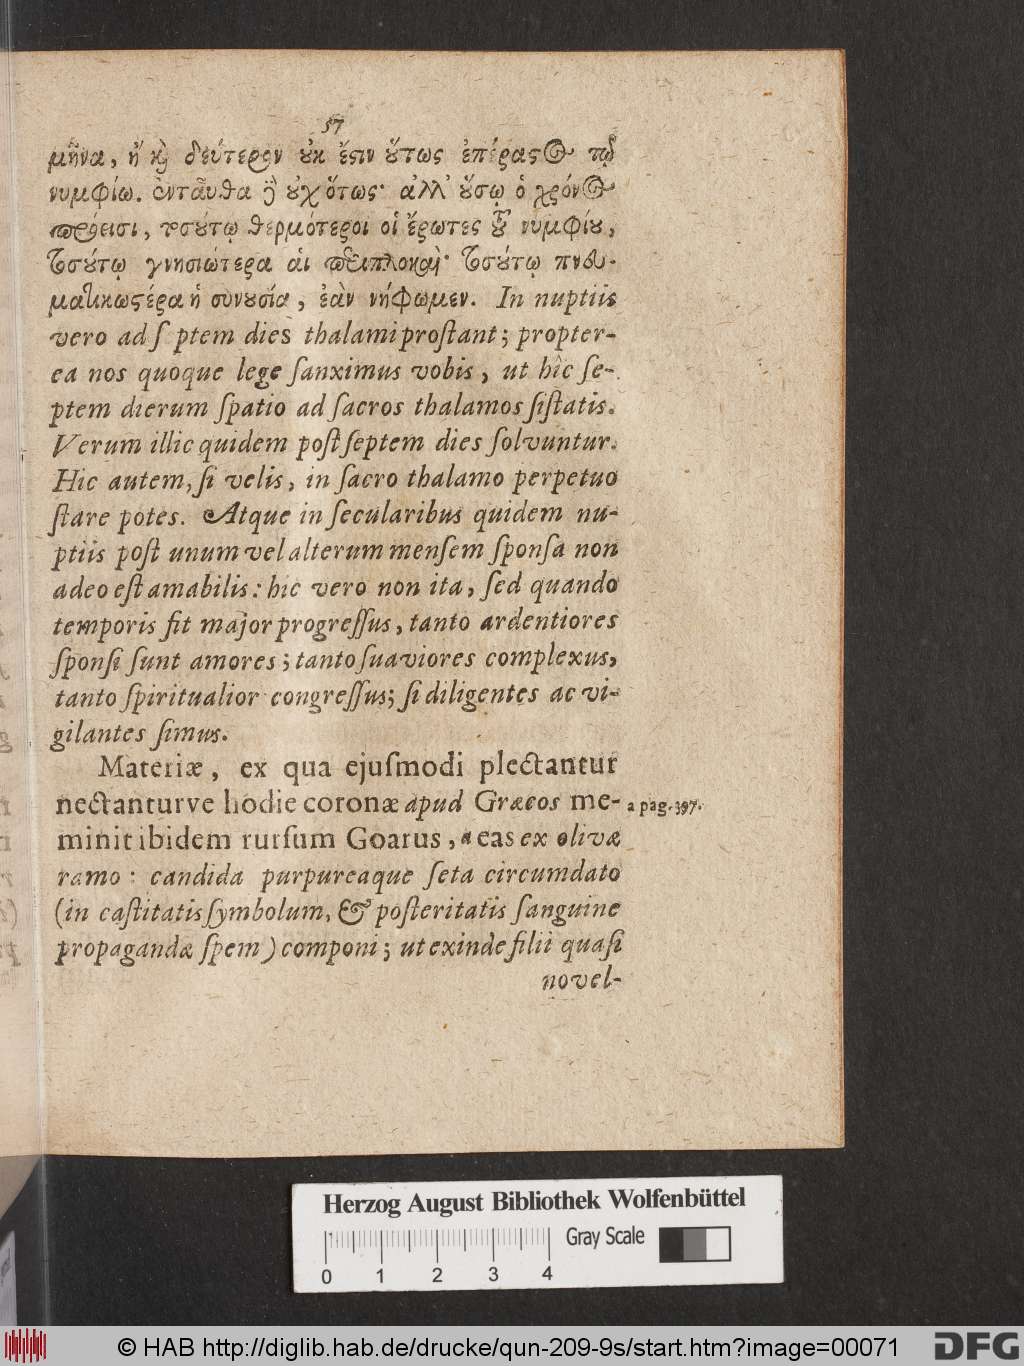 57
μῆνα, ἢ καὶ δεύτερον οὐκ ἔστιν οὕτως ἐπέραστος τῷ
νυμφίῳ. ἐνταῦθα δὲ οὐχ οὕτως· ἀλλ' ὅσῳ ὁ χρόνος
πρόεισι, τοσούτῳ θερμότεροι οἱ ἔρωτες τοῦ νυμφίου,
τοσούτῳ γνησιώτεραι αἱ περιπλοκαὶ· τοσούτῳ πνευ-
ματικωτέρα ἡ συνουσία, ἐὰν νήφωμεν. In nuptiis
vero ad ſ ptem dies thalami proſtant; propter-
ea nos quoque lege ſanximus vobis, ut hîc ſe-
ptem dierum ſpatio ad ſacros thalamos ſiſtatis.
Verum illic quidem poſt ſeptem dies ſolvuntur.
Hic autem, ſi velis, in ſacro thalamo perpetuo
ſtare potes. Atque in ſecularibus quidem nu-
ptiis poſt unum vel alterum menſem ſponſa non
adeo eſt amabilis: hic vero non ita, ſed quando
temporis fit major progreſſus, tanto ardentiores
ſponſi ſunt amores; tanto ſuaviores complexus,
tanto ſpiritualior congreſſus; ſi diligentes ac vi-
gilantes ſimus.
Materiæ, ex qua ejuſmodi plectantur
nectanturve hodie coronæ apud Græcos me- a pag. 397.
minit ibidem rurſum Goarus, a eas ex olivæ
ramo: candida purpureaque ſeta circumdato
(in caſtitatis ſymbolum, & poſteritatis ſanguine
propagandæ ſpem) componi; ut exinde filii quaſi
novel-
Herzog August Bibliothek Wolfenbüttel
Gray Scale
0 1 2 3 4
© HAB http://diglib.hab.de/drucke/qun-209-9s/start.htm?image=00071
DFG